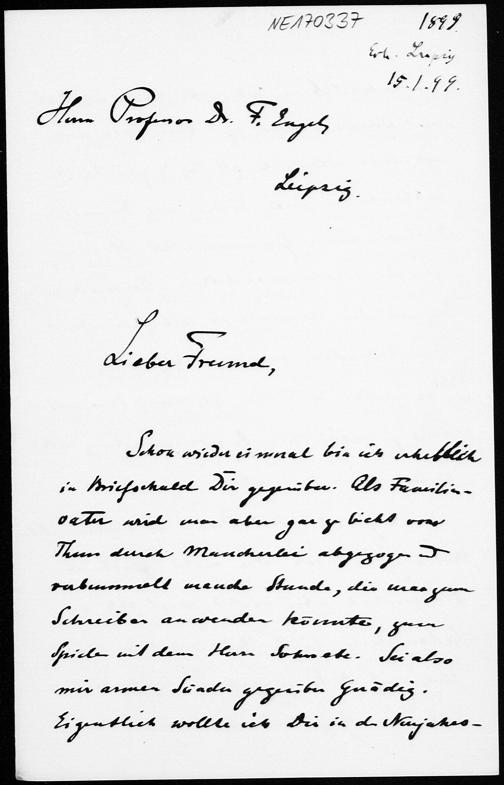 NE170337
1899.
Erh. Leipzig
15.1.99.
Herrn Professor Dr. F. Engel,
Leipzig.
Lieber Freund,
Schon wieder einmal bin ich erheblich
in Briefschuld Dir gegenüber. Als Familien-
vater wird man aber gar zu leicht vom
Thun durch Mancherlei abgezogen u
verbummelt manche Stunde, die man zum
Schreiben anwenden könnte, zum
Spielen mit dem Herrn Sohne. Sei also
mir armen Sünder gegenüber gnädig.
Eigentlich wollte ich Dir in d. Neujahrs-